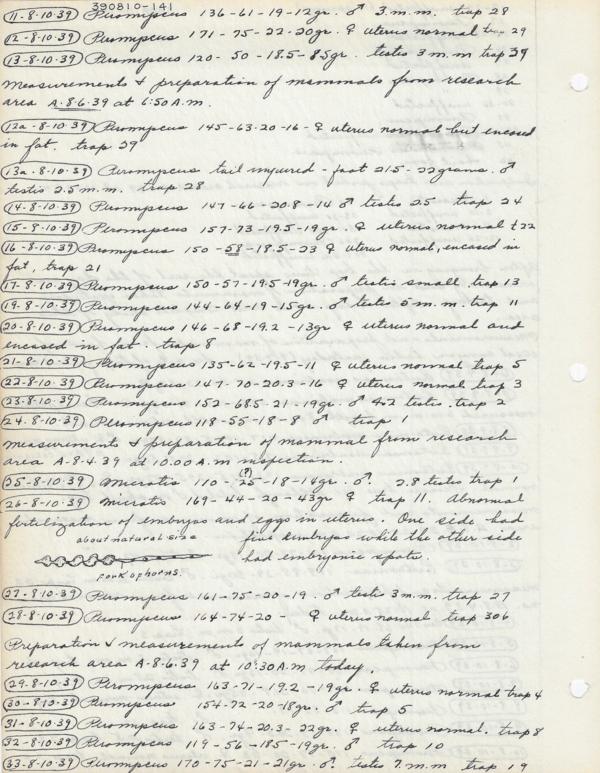 390810-141
11-8-10-39 Peromyscus 136-61-19-12gr. ♂ 3.m.m. trap 28
12-8-10-39 Peromyscus 171-75-22-20gr. ♀ uterus normal trap 29
13-8-10-39 Peromyscus 120-50-18.5-85gr. testes 3 m.m trap 39
Measurements & preparation of mammals from research
area A-8-6-39 at 6:50 A.m.
12a-8-10-39 Peromyscus 145-63-20-16-♀ uterus normal but encased
in fat. trap 29
13a-8-10-39 Peromyscus tail injured - foot 21.5-22grams. ♂
testis 2.5 m.m. trap 28
14-8-10-39 Peromyscus 147-66-20.8-14 ♂ testes 2.5 trap 24
15-8-10-39 Peromyscus 157-73-19.5-19gr. ♀ uterus normal t 22
16-8-10-39 Peromyscus 150-58-18.5-23 ♀ uterus normal, encased in
fat, trap 21
17-8-10-39 Peromyscus 150-57-19.5-19gr. ♂ testis small trap 13
19-8-10-39 Peromyscus 144-64-19-15gr. ♂ testes 5 m.m. trap 11
20-8-10-39 Peromyscus 146-68-19.2-13gr ♀ uterus normal and
encased in fat. trap 8
21-8-10-39 Peromyscus 135-62-19.5-11 ♀ uterus normal trap 5
22-8-10-39 Peromyscus 147-70-20.3-16 ♀ uterus normal trap 3
23-8-10-39 Peromyscus 152-68.5-21-19gr. ♂ 4x2 testes. trap 2
24-8-10-39 Peromyscus 118-55-18-8 ♂ trap 1
Measurements & preparation of mammal from research
area A-8-4-39 at 10:00 A.m inspection.
(?)
25-8-10-39 Microtis 110-25-18-14gr. ♂. 2.8 testes trap 1
26-8-10-39 Microtis 169-44-20-43gr ♀ trap 11. Abnormal
fertilization of embryos and eggs in uterus. One side had
about natural size five embryos while the other side
had embryonic spots.
fork of horns.
27-8-10-39 Peromyscus 161-75-20-19. ♂ testes 3 m.m. trap 27
28-8-10-39 Peromyscus 164-74-20- ♀ uterus normal trap 306
Preparation & measurement of mammals taken from
research area A-8-6-39 at 10:30 A.m today.
29-8-10-39 Peromyscus 163-71-19.2-19gr. ♀ uterus normal trap 4
30-8-10-39 Peromyscus 154-72-20-18gr. ♂ trap 5
31-8-10-39 Peromyscus 163-74-20.3-22gr. ♀ uterus normal. trap 8
32-8-10-39 Peromyscus 119-56-18.5-19gr. ♂ trap 10
33-8-10-39 Peromyscus 170-75-21-21gr. ♂. testes 7.m.m trap 19